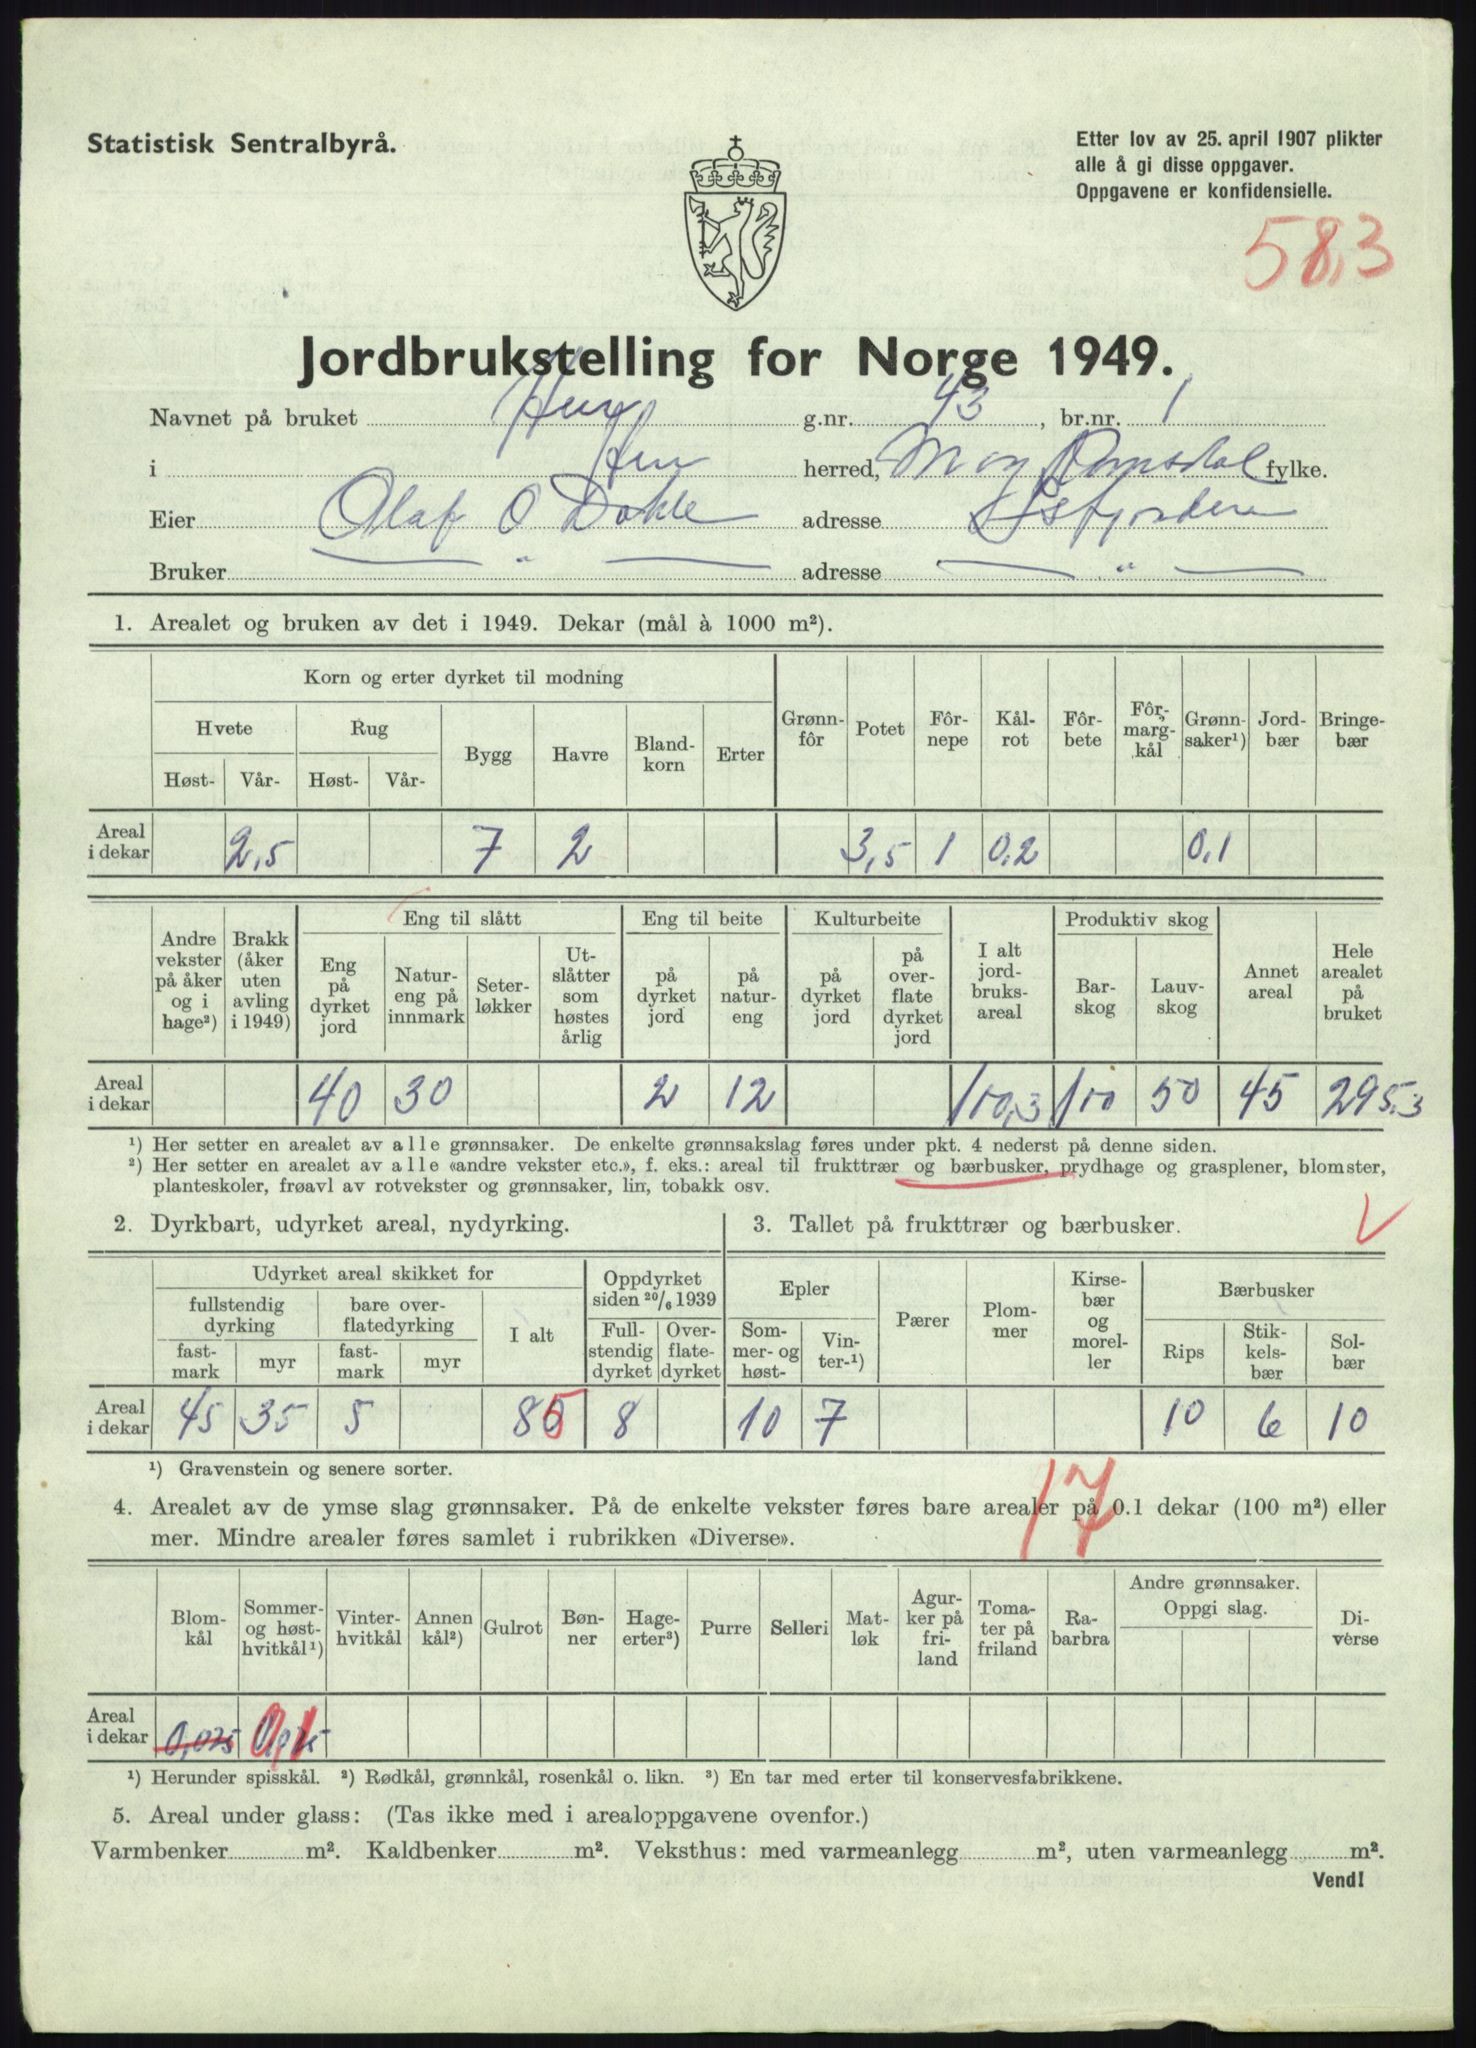 Statistisk Sentralbyrå.
Etter lov av 25. april 1907 plikter
alle å gi disse oppgaver.
Oppgavene er konfidensielle.
58,3
Jordbrukstelling for Norge 1949.
Navnet på bruket Hen g.nr. 43, br.nr. 1
i Hen herred, M og Romsdal fylke.
Eier Olaf O Dahle adresse Isfjorden
Bruker — " — adresse — " —
1. Arealet og bruken av det i 1949. Dekar (mål à 1000 m²).
Korn og erter dyrket til modning
Hvete Rug Bygg Havre Bland-korn Erter Grønn-fôr Potet Fôr-nepe Kål-rot Fôr-bete Fôr-marg-kål Grønn-saker¹) Jord-bær Bringe-bær
Høst- Vår- Høst- Vår-
Areal i dekar 2,5 7 2 3,5 1 0,2 0,1
Eng til slått Eng til beite Kulturbeite Produktiv skog
Andre vekster på åker og i hage²) Brakk (åker uten avling i 1949) Eng på dyrket jord Natur-eng på innmark Seter-løkker Ut-slåtter som høstes årlig på dyrket jord på natur-eng på dyrket jord på over-flate dyrket jord I alt jord-bruks-areal Bar-skog Lauv-skog Annet areal Hele arealet på bruket
Areal i dekar 40 30 2 12 100,3 100 50 45 295,3
¹) Her setter en arealet av alle grønnsaker. De enkelte grønnsakslag føres under pkt. 4 nederst på denne siden.
²) Her setter en arealet av alle «andre vekster etc.», f. eks.: areal til frukttrær og bærbusker, prydhage og grasplener, blomster,
planteskoler, frøavl av rotvekster og grønnsaker, lin, tobakk osv.
2. Dyrkbart, udyrket areal, nydyrking.
3. Tallet på frukttrær og bærbusker.
Udyrket areal skikket for Oppdyrket siden 20/6 1939 Epler Pærer Plom-mer Kirse-bær og morel-ler Bærbusker
fullstendig dyrking bare over-flatedyrking I alt Full-stendig dyrket Over-flate-dyrket Som-mer- og høst- Vin-ter-¹) Rips Stik-kels-bær Sol-bær
fast-mark myr fast-mark myr
Areal i dekar 45 35 5 85 8 10 7 10 6 10
¹) Gravenstein og senere sorter.
17
4. Arealet av de ymse slag grønnsaker. På de enkelte vekster føres bare arealer på 0.1 dekar (100 m²) eller
mer. Mindre arealer føres samlet i rubrikken «Diverse».
Blom-kål Sommer- og høst-hvitkål¹) Vinter-hvitkål Annen kål²) Gulrot Bøn-ner Hage-erter³) Purre Selleri Mat-løk Agur-ker på fri-land Toma-ter på friland Ra-barbra Andre grønnsaker. Oppgi slag. Di-verse
Areal i dekar 0,025 0,1
¹) Herunder spisskål. ²) Rødkål, grønnkål, rosenkål o. likn. ³) En tar med erter til konservesfabrikkene.
5. Areal under glass: (Tas ikke med i arealoppgavene ovenfor.)
Varmbenker m². Kaldbenker m². Veksthus: med varmeanlegg m², uten varmeanlegg m².
Vend!